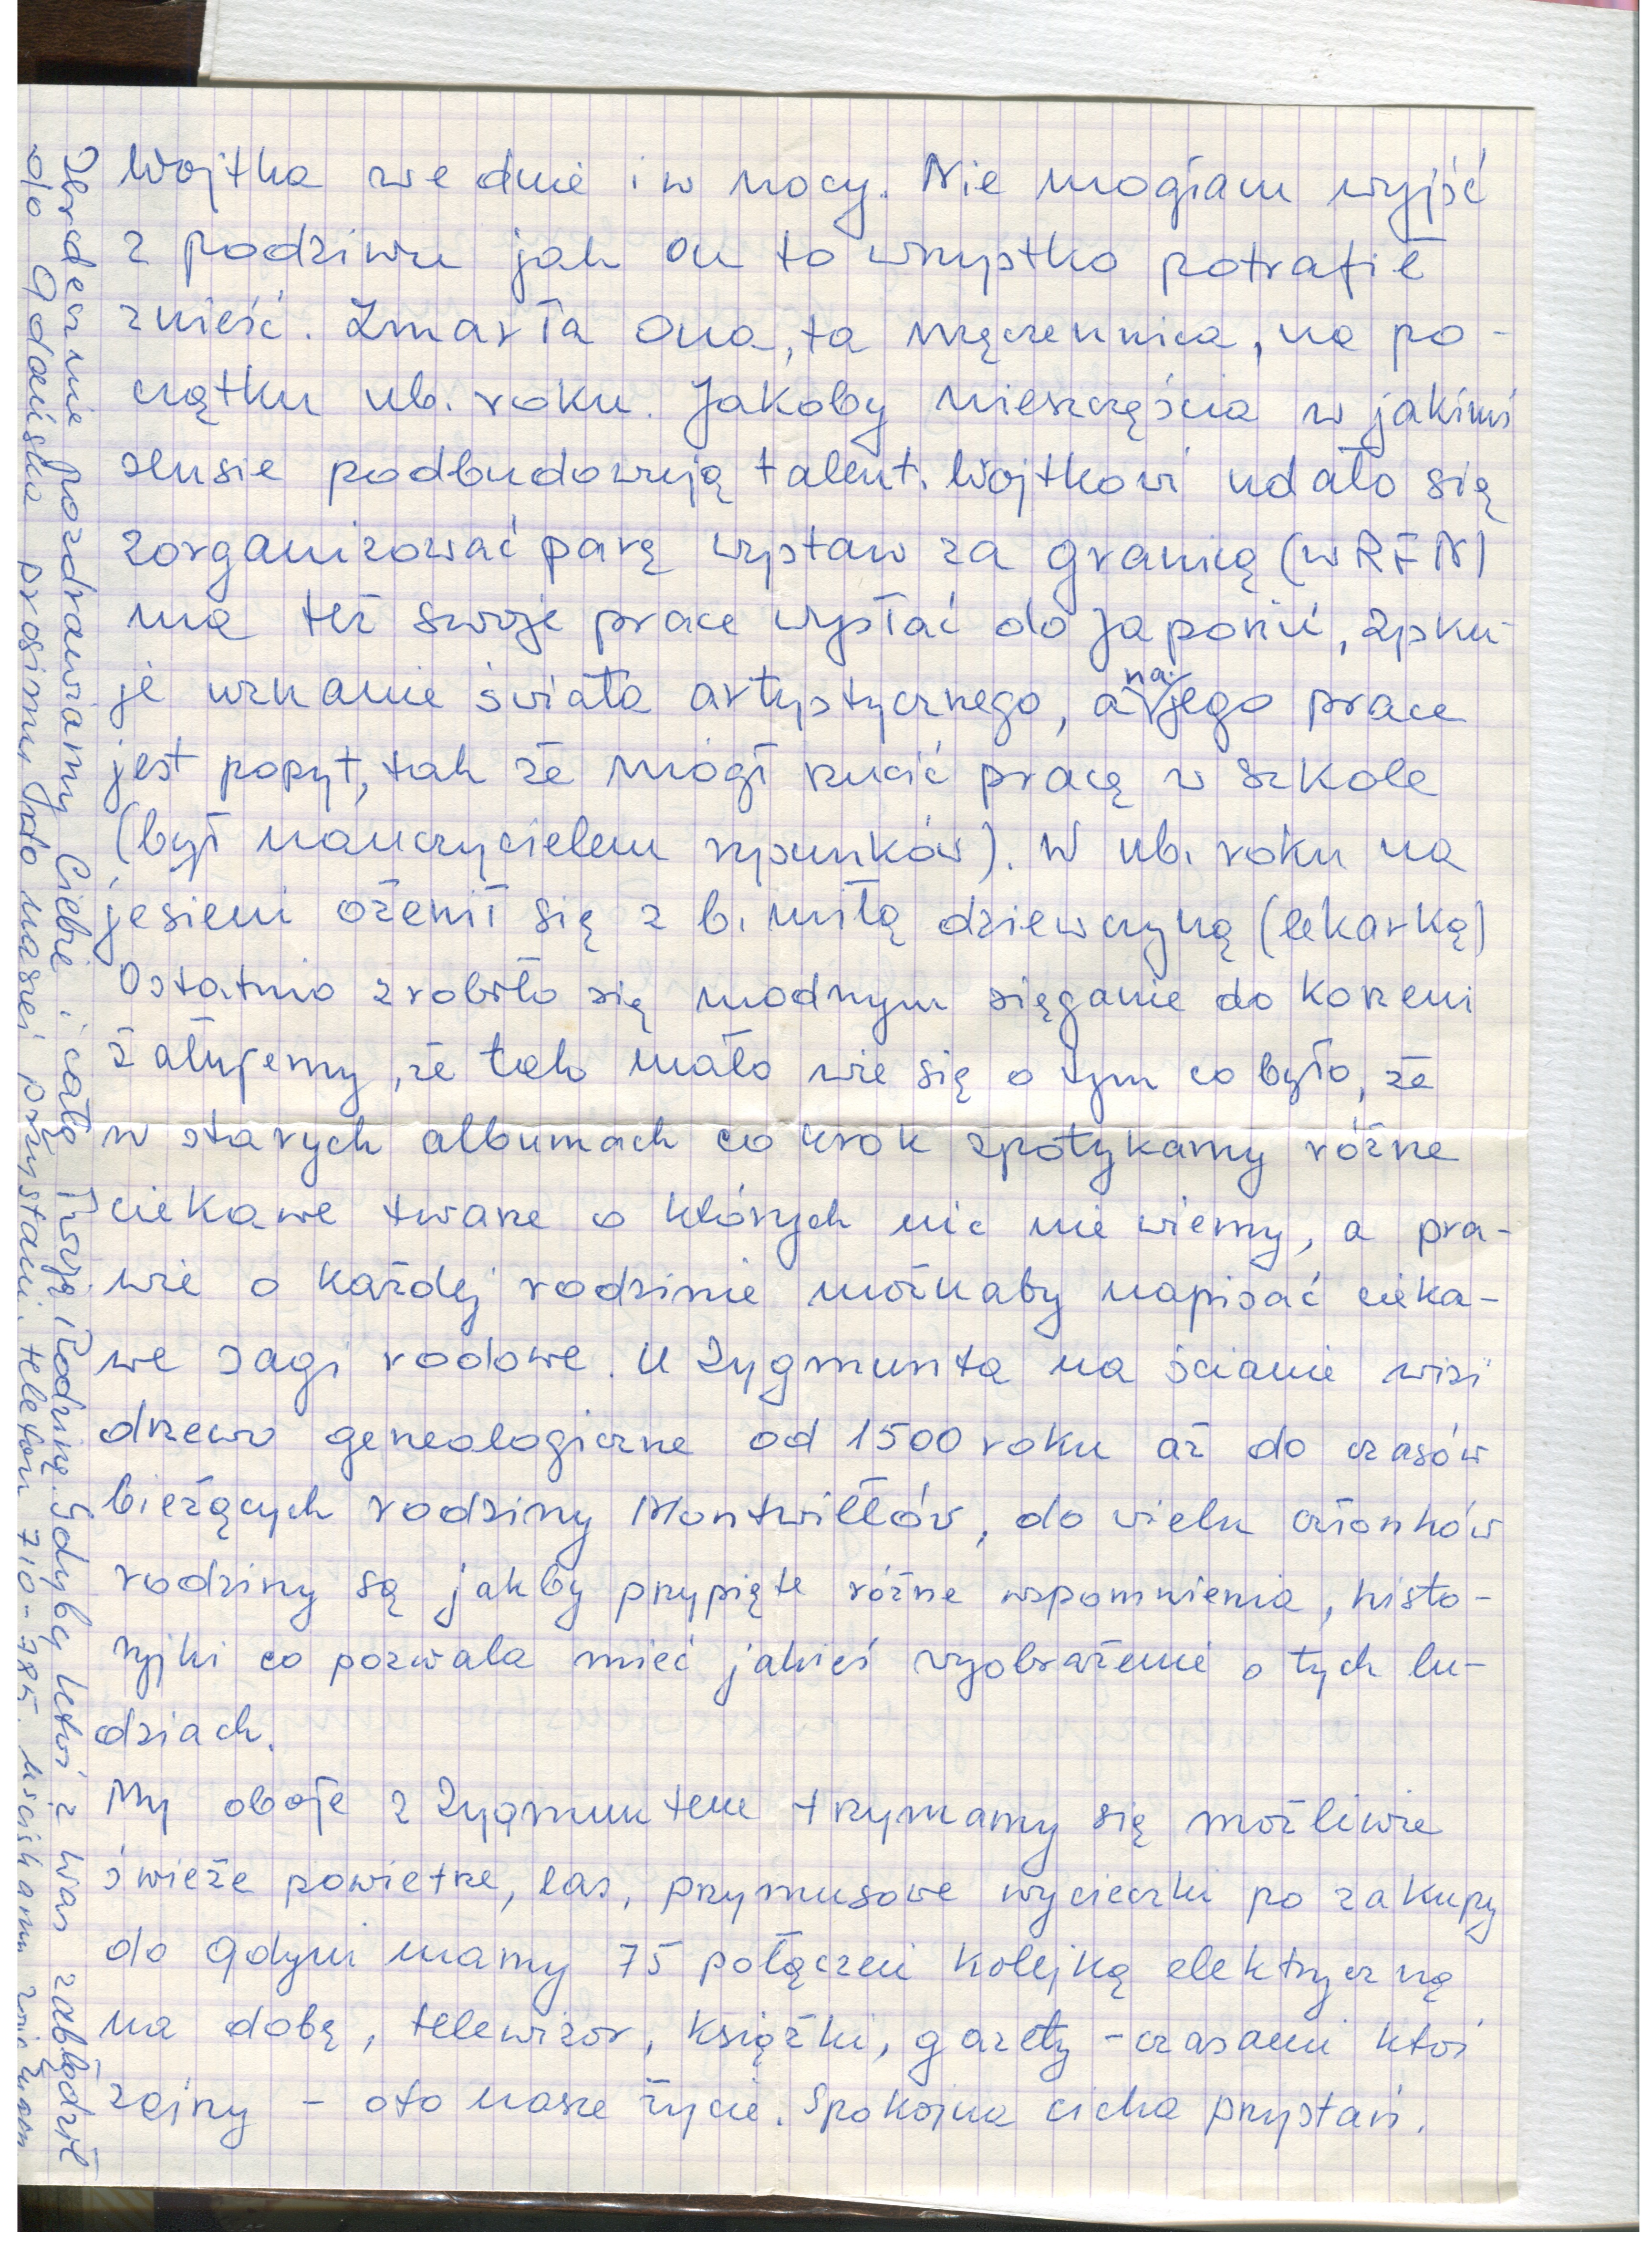 Wojtka we dnie i w nocy. Nie mogłam wyjść
z podziwu jak on to wszystko potrafił
znieść. Zmarła ona, ta męczennica, na po-
czątku ub. roku. Jakoby nieszczęścia w jakimś
sensie podbudowują talent. Wojtkowi udało się
zorganizować parę wystaw za granicą (w RFN)
ma też swoje prace wysłać do Japonii, zysku-
je uznanie świata artystycznego, a na jego prace
jest popyt, tak że mógł rzucić pracę w szkole
(był nauczycielem rysunków). W ub. roku na
jesieni ożenił się z b. miłą dziewczyną (lekarką)
Ostatnio zrobiło się modnym sięganie do korzeni
żałujemy, że tak mało wie się o tym co było, że
w starych albumach co krok spotykamy różne
ciekawe twarze o których nic nie wiemy, a pra-
wie o każdej rodzinie możnaby napisać cieka-
we sagi rodowe. U Zygmunta na ścianie wisi
drzewo geneologiczne od 1500 roku aż do czasów
bieżących rodziny Montwiłłów, do wielu członków
rodziny są jakby przypięte różne wspomnienia, histo-
ryjki co pozwala mieć jakieś wyobrażenie o tych lu-
dziach.
My oboje z Zygmuntem trzymamy się możliwie
świeże powietrze, las, przymusowe wycieczki po zakupy
do Gdyni mamy 75 połączeń kolejką elektryczną
na dobę, telewizor, książki, gazety - czasami ktoś
zajrzy - oto nasze życie. Spokojna cicha przystań.
Serdecznie pozdrawiamy Ciebie i całą Twoją Rodzinę. Gdyby ktoś z Was zabłądził
do Gdańska prosimy do naszej przystani, telefon 710-785. Uściskam